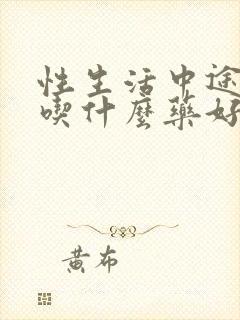 性生活中途
喫什麼藥好
黃布